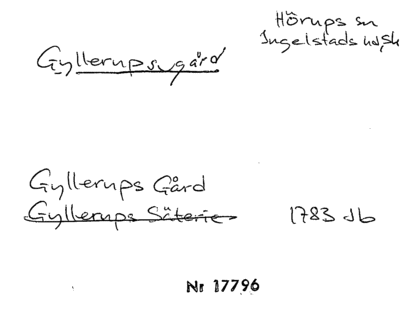 Hörups sn
Ingelstads hd, Sk
Gyllerupsgård
Gyllerups Gård
Gyllerups Säterie
1783 Jb
Nr 17796